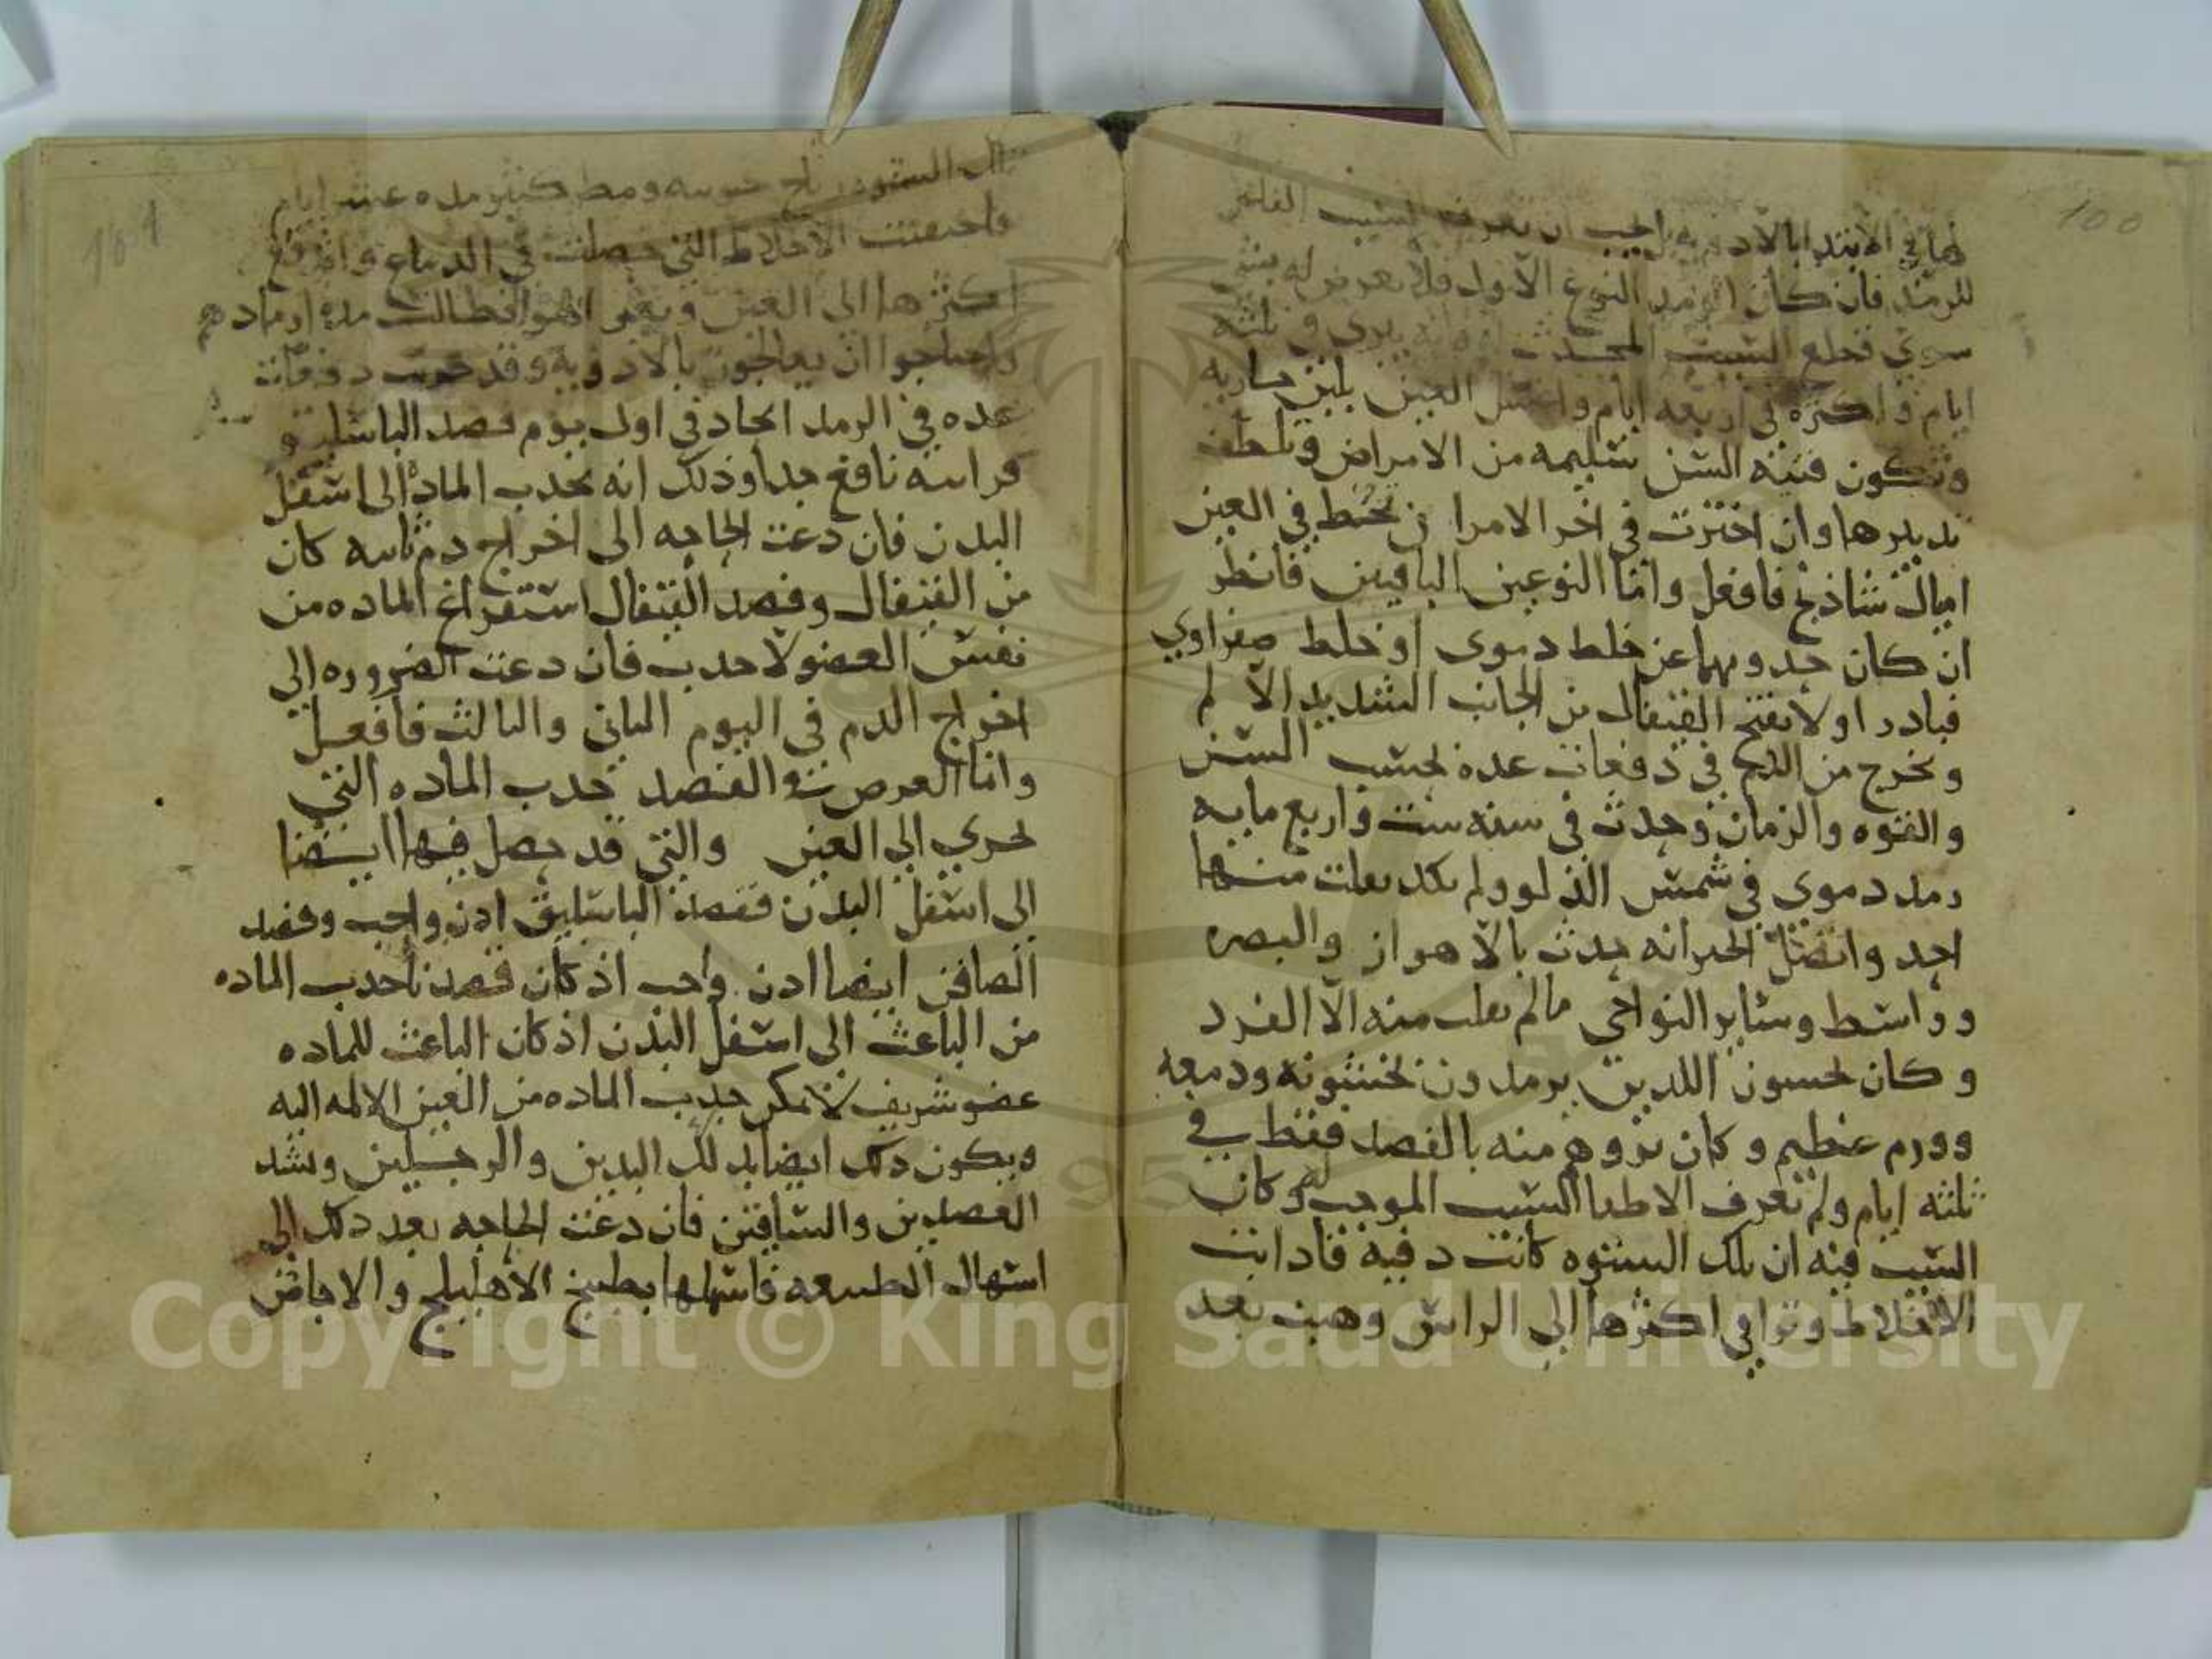 100
لها في الابتدا بالادويه يجب ان تعرف السبب الفاعل
للرمد فان كان الرمد النوع الاول فلا تعرض له بشي
سوي قطع السبب المحدث يبري في ثلثه
ايام واكثره في اربعه ايام واغسل العين بلبن جاريه
وتكون فتيه السن سليمه من الامراض وتلطف
تدبيرها وان اخترت في اخر الامر ان تخط في العين
اميال شاذنج فافعل واما النوعين الباقيين فانظر
ان كان حدوثهما عن خلط دموي او خلط صفراوي
فبادر اولا بفتح القيفال من الجانب الشديد الالم
وتخرج من الدم في دفعات عده بحسب السن
والقوه والزمان وحدث في سنه ست واربع مايه
رمد دموي في شمس الدلو ولم يكد يفلت منها
احد واتصل الخبر انه حدث بالاهواز والبصره
وواسط وساير النواحي مالم يفلت منه الا الفرد
وكان يحسون اللدين يرمدون بخشونه ودمعه
وورم عظيم وكان بروهم منه بالفصد فقط في
ثلثه ايام ولم تعرف الاطبا السبب الموجب له وكان
السبب فيه ان تلك الستوه كانت دفيه فادابت
الاخلاط وتراقي اكثرها الي الراس وهبت بعد
101
تلك الستوه رياح جنوبيه ومطر كثير مده عشر ايام
فاحتقنت الاخلاط التي حصلت في الدماغ واندفع
اكثرها الي العين وبقي الهوا فطالت مده ارمادهم
واحتاجوا ان يعالجون بالادويه وقد جربت دفعات
عده في الرمد الحاد في اول يوم فصد الباسليق
فرايته نافع جدا وذلك انه يجدب الماده الى اسفل
البدن فان دعت الحاجه الى اخراج دم ثانيه كان
من القيفال وفصد القيفال استفراغ الماده من
نفس العضو لا جدب فان دعت الضروره الي
اخراج الدم في اليوم الثاني والثالث فافعل
واما الغرض في الفصد جدب الماده التي
تجري الي العين والتي قد حصل فيها ايضا
الى اسفل البدن ففصد الباسليق ادن واجب وفصد
الصافن ايضا ادن واجب اذ كان قصدنا جدب الماده
من الباعث الى اسفل البدن اذ كان الباعث للماده
عضو شريف لا يمكن جدب الماده من العين الالمه اليه
ويكون دلك ايضا بدلك اليدين والرجلين وشد
العضدين والساقين فان دعت الحاجه بعد دلك الى
اسهال الطبيعه فاسهلها بطبيخ الاهليلج والاجاص
Copyright © King Saud University